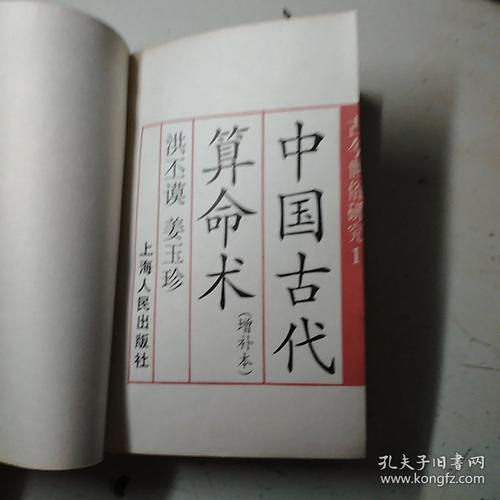 古今
研究1
中国古代
算命术
(增补本)
洪丕谟 姜玉珍
上海人民出版社
孔夫子旧书网
www.kongfz.com